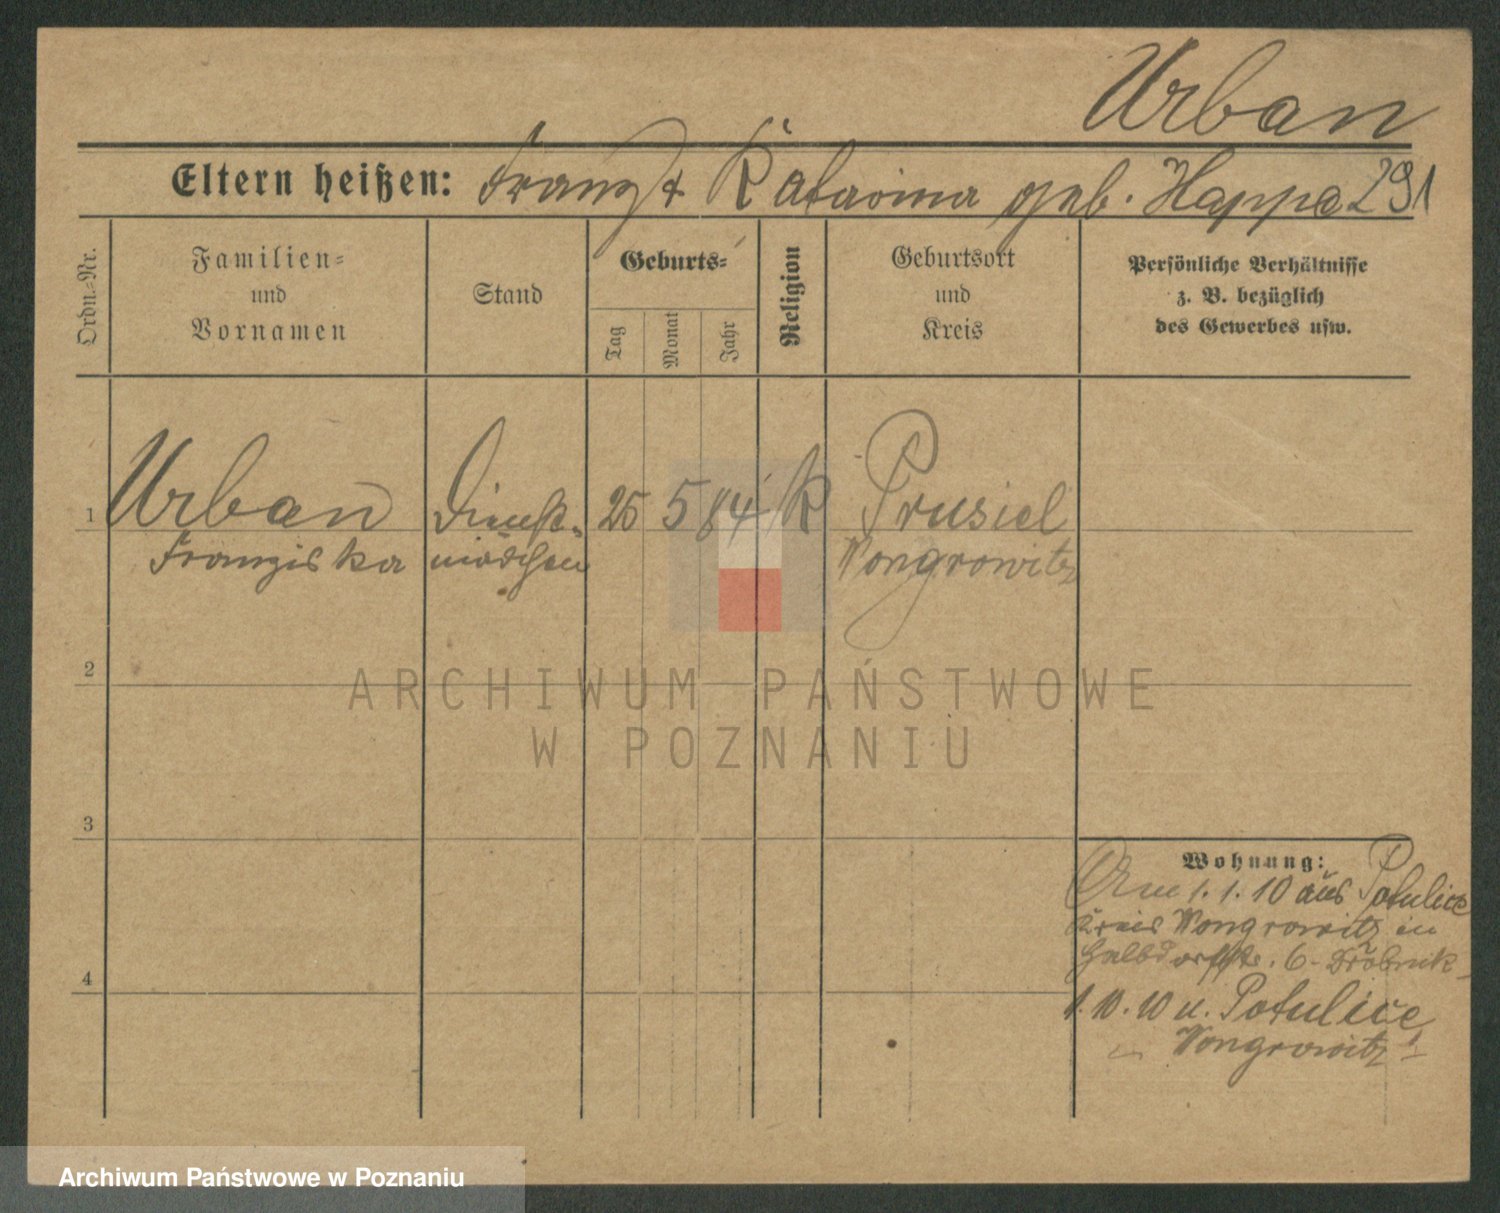 Urban
Eltern heißen: Franz & Katarina geb. Happe 291
Ordn.-Nr.
Familien-
und
Vornamen
Stand
Geburts-
Tag
Monat
Jahr
Religion
Geburtsort
und
Kreis
Persönliche Verhältnisse
z. B. bezüglich
des Gewerbes usw.
1 Urban Dienst- 25 5 84 K Prusiel
Franziska mädchen Wongrowitz
2
ARCHIWUM PAŃSTWOWE
W POZNANIU
3
Wohnung:
Am 1. 1. 10 aus Potulice
Kreis Wongrowitz in
6
4
1. 10. 10 n. Potulice
Wongrowitz
Archiwum Państwowe w Poznaniu